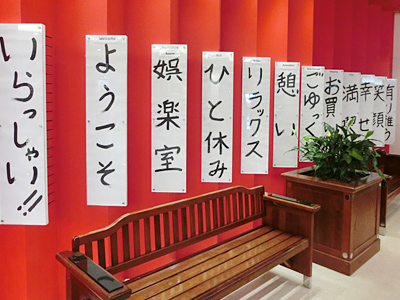 いらっしゃい!!
ようこそ
娯楽室
ひと休み
リラックス
憩い
ごゆっく
お買
満
幸せ
笑顔
有り難う